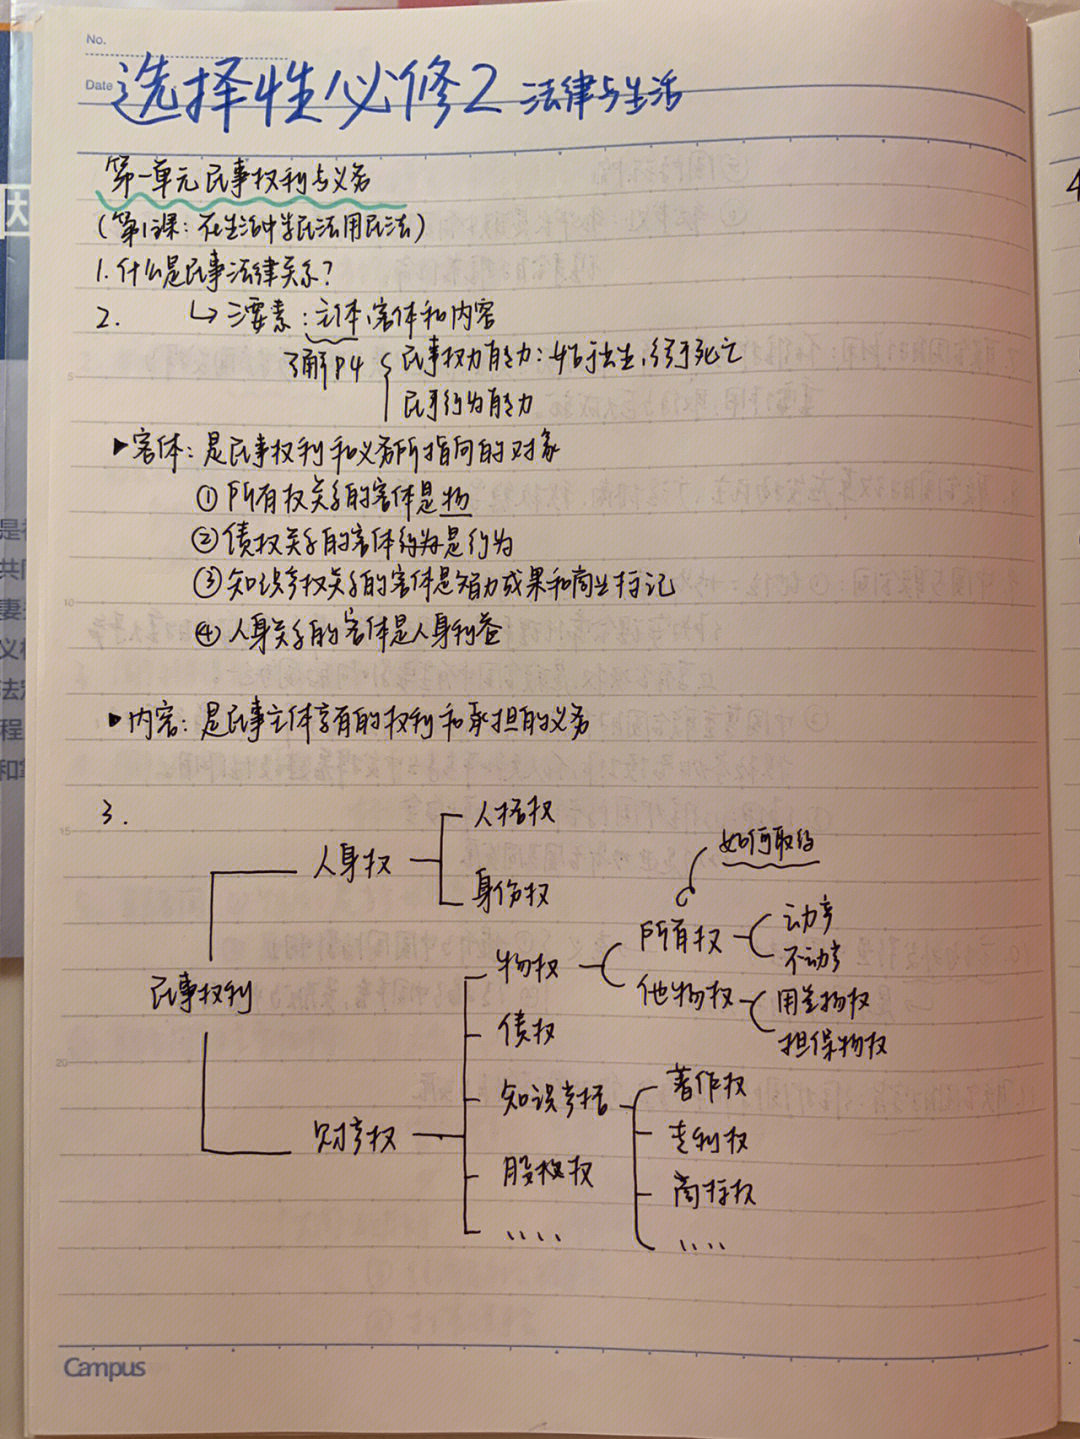 No.
Date 选择性必修2 法律与生活
第一单元 民事权利与义务
(第1课: 在生活中学民法用民法)
1. 什么是民事法律关系?
2. ↳ 三要素: 主体、客体和内容
了解P4 { 民事权力能力: 始于出生,终于死亡
民事行为能力
▶客体: 是民事权利和义务所指向的对象
①所有权关系的客体是物
②债权关系的客体行为是行为
③知识产权关系的客体是智力成果和商业标记
④人身关系的客体是人身利益
▶内容: 是民事主体享有的权利和承担的义务
3.
人格权
人身权
如何取得
身份权
动产
所有权
物权
不动产
民事权利
他物权
用益物权
债权
担保物权
著作权
知识产权
财产权
专利权
股权
商标权
....
....
Campus
5
10
15
20
大
是
共
妻
义
法
程
和
4